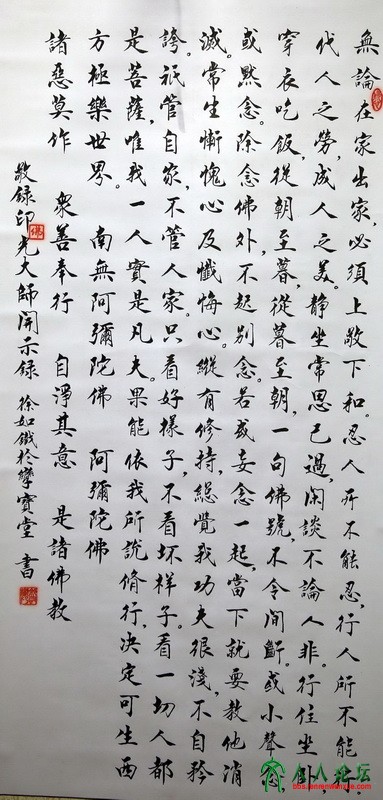 無論在家出家,必須上敬下和。忍人所不能忍,行人所不能行,
代人之勞,成人之美。静坐常思己過,闲談不論人非。行住坐卧,
穿衣吃飯,從朝至暮,從暮至朝,一句佛號,不令间斷。或小聲念,
或默念。除念佛外,不起别念。若或妄念一起,當下就要教他消
滅。常生慚愧心及懺悔心。縱有修持,總覺我功夫很淺,不自矜
誇。祇管自家,不管人家。只看好樣子,不看坏样子。看一切人都
是菩薩,唯我一人實是凡夫。果能依我所說脩行,决定可生西
方極樂世界。 南無阿彌陀佛 阿彌陀佛
諸惡莫作 衆善奉行 自淨其意 是諸佛教
敬録印光大師開示録 徐如鐵於 寶堂 書
佛
人人论坛